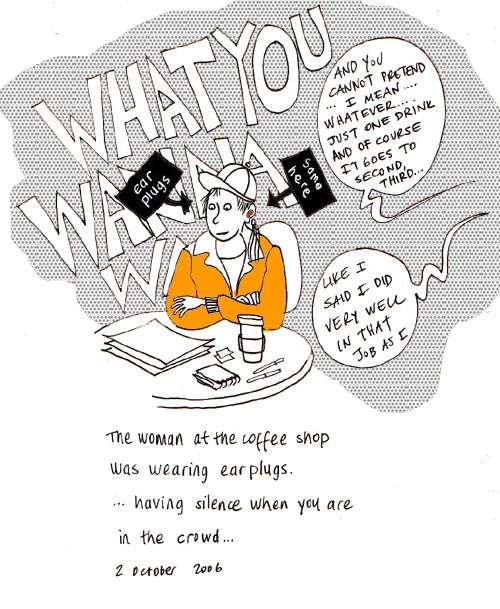 WHAT YOU
WANNA
W
ear
plugs
same
here
AND YOU
CANNOT PRETEND
... I MEAN ....
WHATEVER...
JUST ONE DRINK
AND OF COURSE
IT GOES TO
SECOND,
THIRD...
LIKE I
SAID I DID
VERY WELL
IN THAT
JOB AS I
The woman at the coffee shop
was wearing earplugs.
... having silence when you are
in the crowd...
2 october 2006